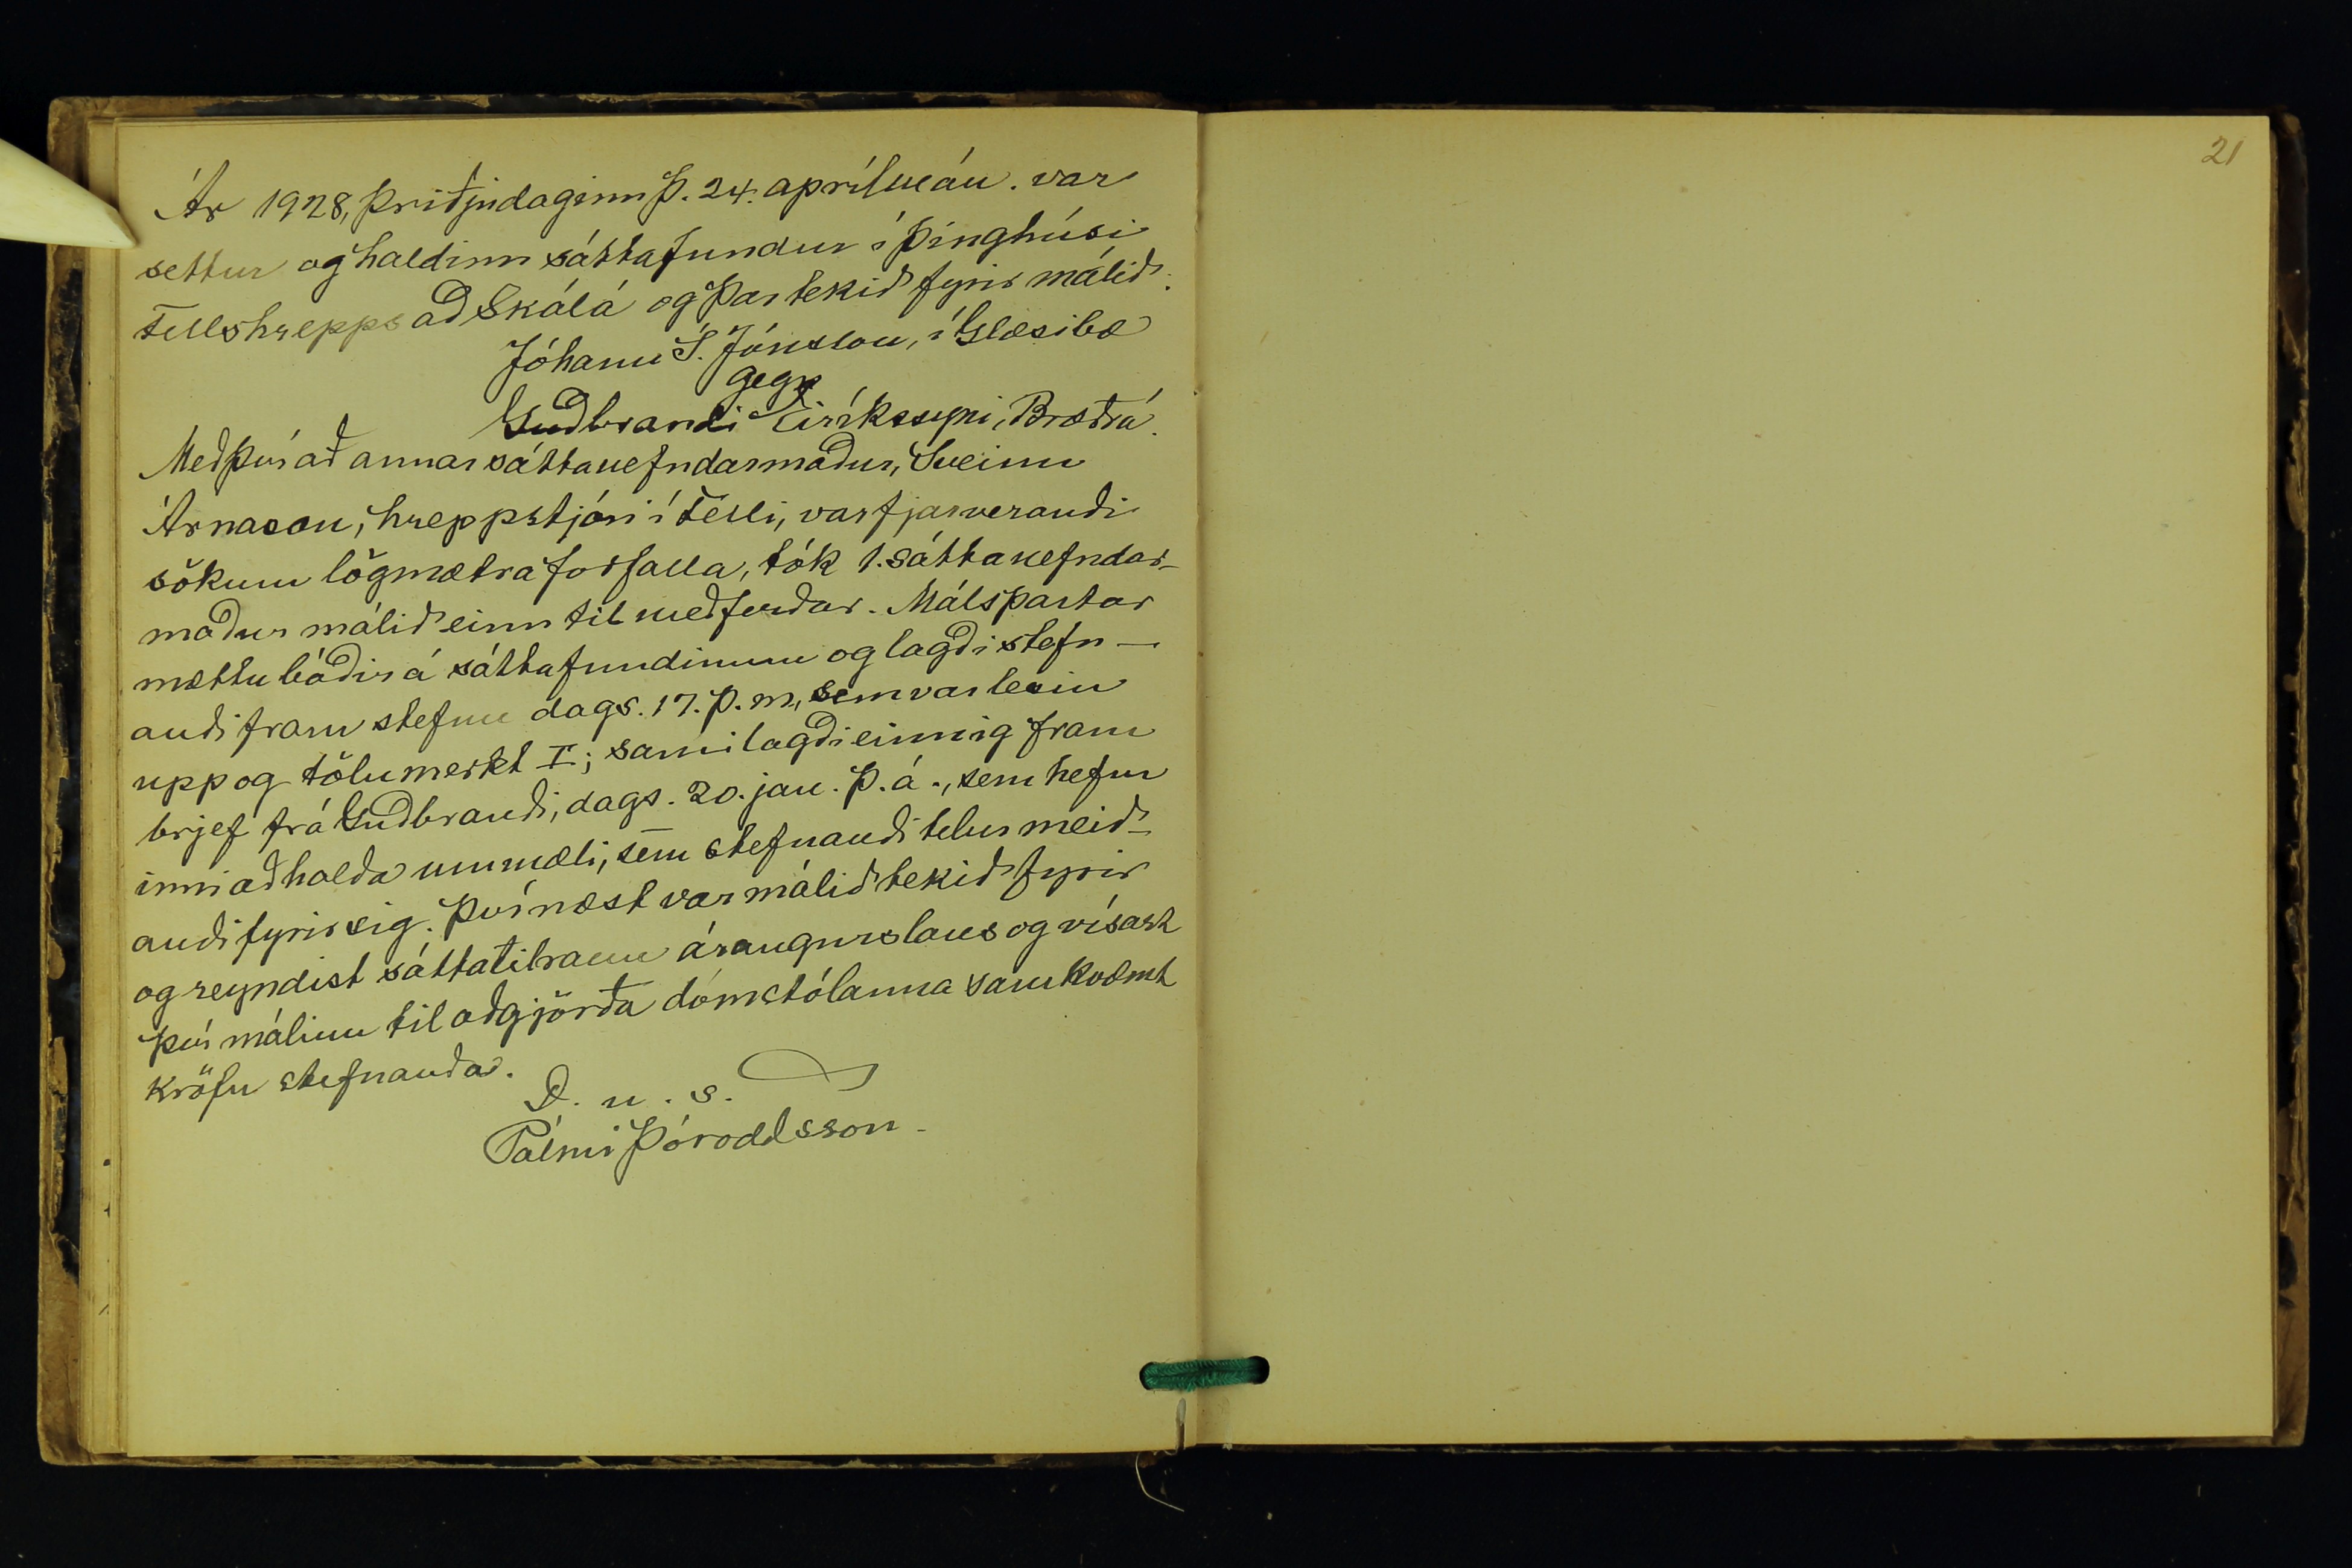 Ár 1928, þriðjudaginn þ. 24. aprílmán. var
settur og haldinn sáttafundur í þinghúsi
Fellshrepps að Skálá og þar tekið fyrir málið:
Jóhann S. Jónsson, í Glæsibæ
gegn
Guðbrandi Eiríkssyni, Bræðrá.
Með því að annar sáttanefndarmaður, Sveinn
Árnason, hreppstjóri í Felli, var fjarverandi
sökum lögmætra forfalla, tók 1. sáttanefndar-
maður málið einn til meðferðar. Málspartar
mættu báðir á sáttafundinum og lagði stefn-
andi fram stefnu dags. 17. þ. m., sem var lesin
upp og tölumerkt I; sami lagði einnig fram
brjef frá Guðbrandi, dags. 20. jan. þ. á., sem hefur
inni að halda ummæli, sem stefnandi telur meið-
andi fyrir sig. Því næst var málið tekið fyrir
og reyndist sáttatilraun árangurslaus og vísast
því málinu til aðgjörða dómstólanna samkvæmt
kröfu stefnanda.
D. u. s.
Pálmi Þóroddsson.
21